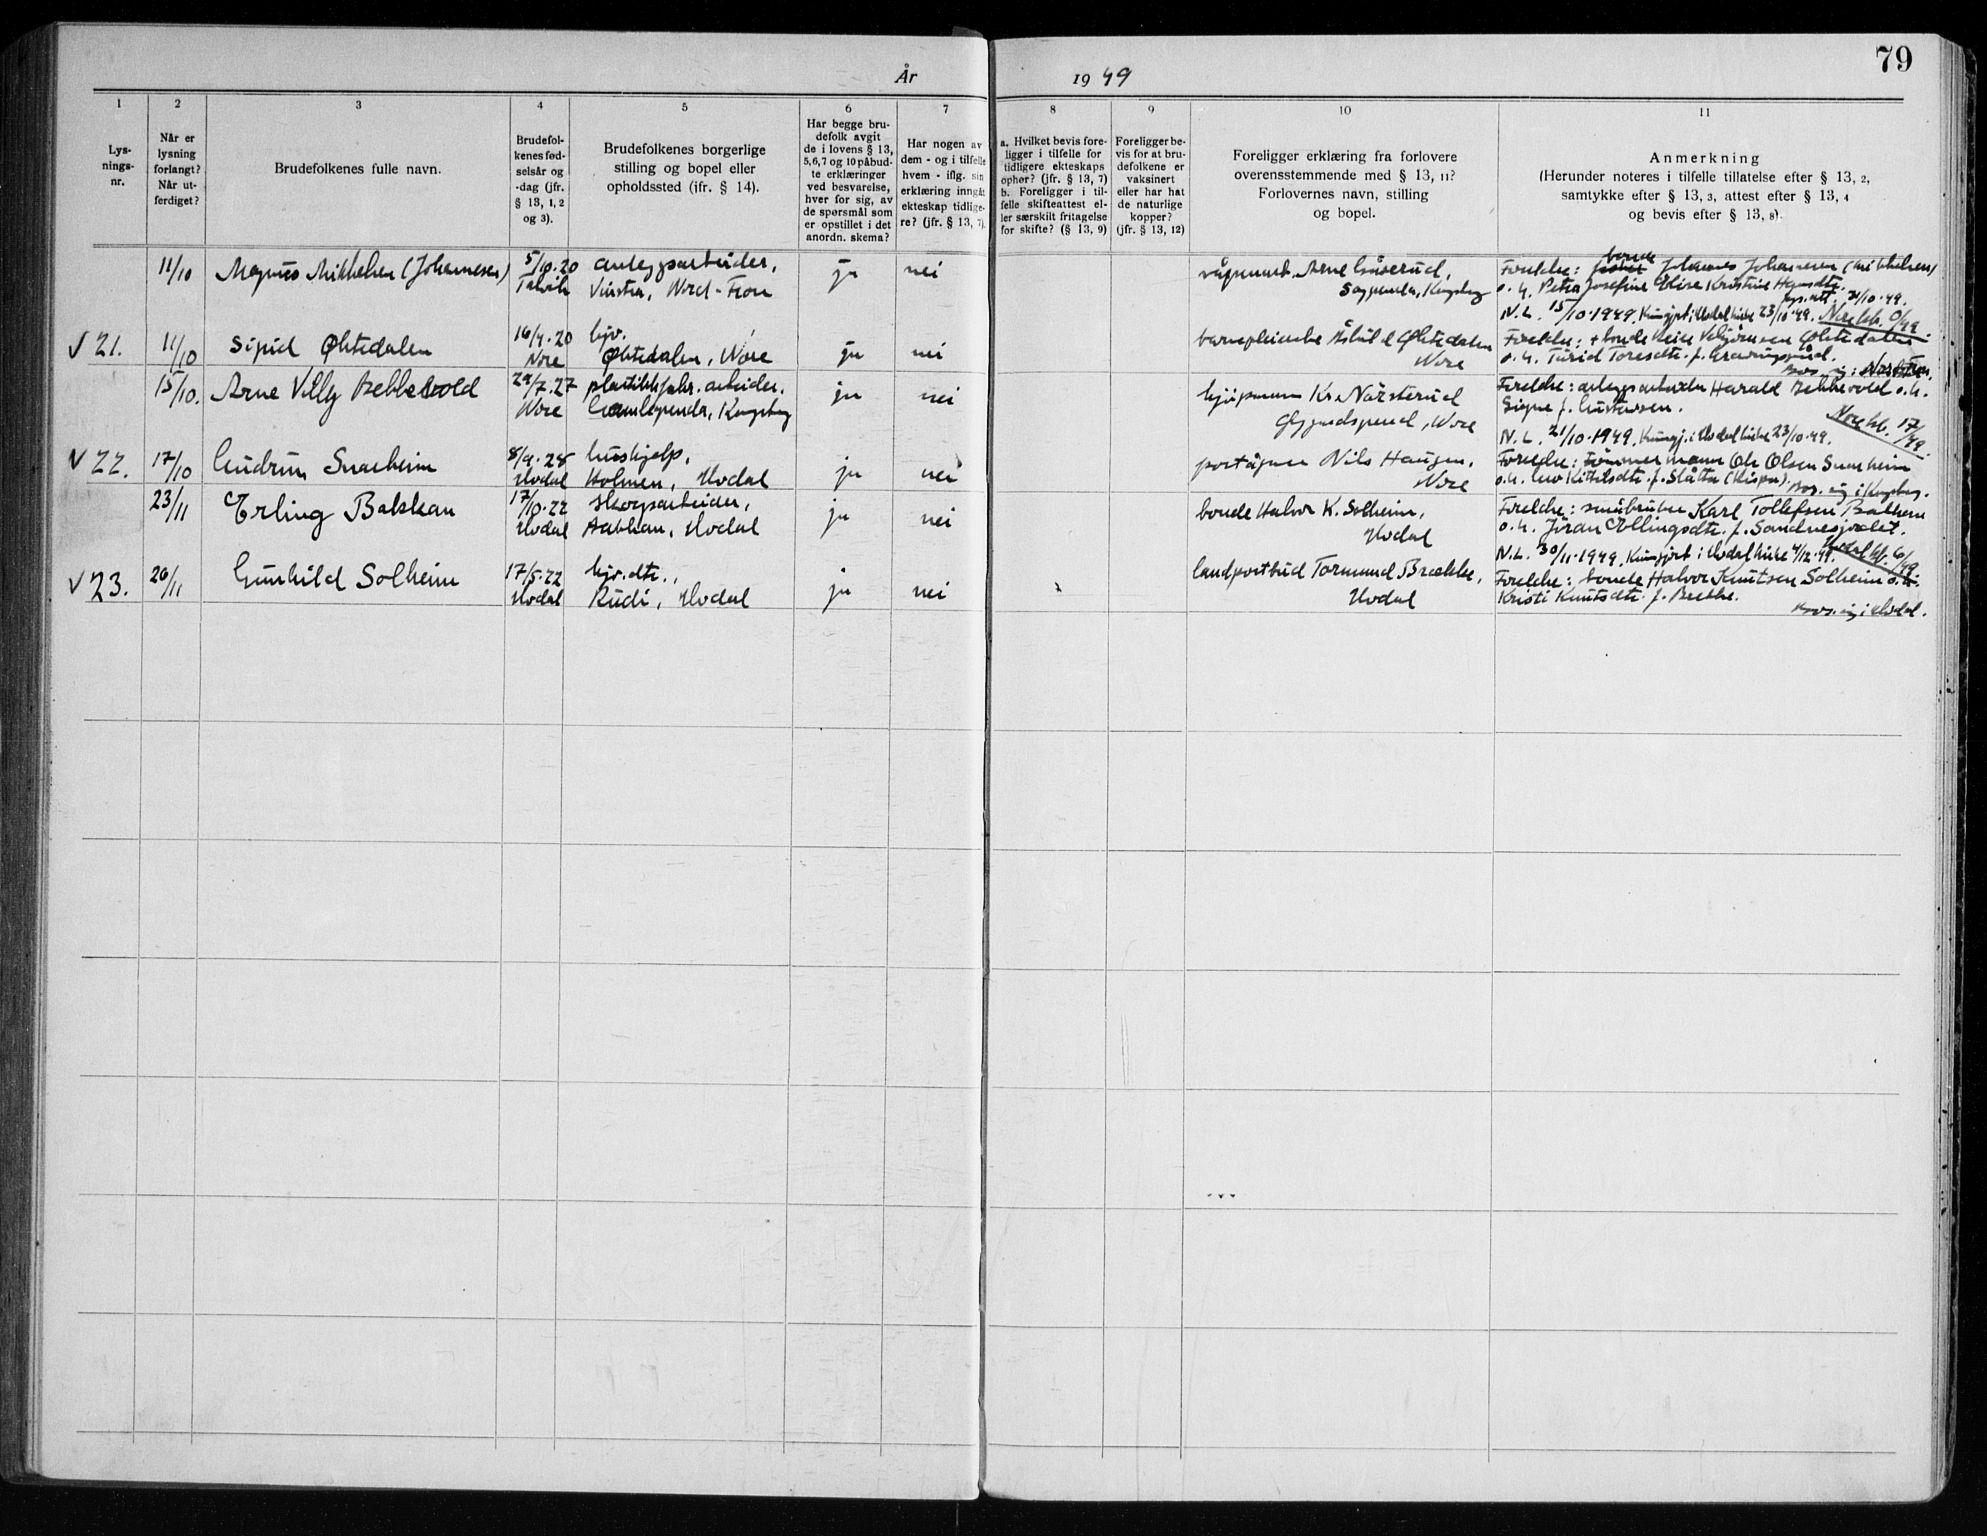 79
År 1949
1 2 3 4 5 6 7 8 9 10 11
Lys-
nings-
nr.
Når er
lysning
forlangt?
Når ut-
ferdiget?
Brudefolkenes fulle navn.
Brudefol-
kenes fød-
selsår og
-dag (jfr.
§ 13, 1, 2
og 3).
Brudefolkenes borgerlige
stilling og bopel eller
opholdssted (jfr. § 14).
Har begge bru-
defolk avgit
de i lovens § 13,
5, 6, 7 og 10 påbud-
te erklæringer
ved besvarelse,
hver for sig, av
de spørsmål som
er opstillet i det
anordn. skema?
Har nogen av
dem - og i tilfelle
hvem - iflg. sin
erklæring inngåt
ekteskap tidlige-
re? (jfr. § 13, 7).
a. Hvilket bevis fore-
ligger i tilfelle for
tidligere ekteskaps
ophør? (jfr. § 13, 7)
b. Foreligger i til-
felle skifteattest el-
ler særskilt fritagelse
for skifte? (§ 13, 9)
Foreligger be-
vis for at bru-
defolkene er
vaksinert
eller har hat
de naturlige
kopper?
(jfr. § 13, 12)
Foreligger erklæring fra forlovere
overensstemmende med § 13, 11?
Forlovernes navn, stilling
og bopel.
Anmerkning
(Herunder noteres i tilfelle tillatelse efter § 13, 2,
samtykke efter § 13, 3, attest efter § 13, 4
og bevis efter § 13, 8).
11/10 Magnus Mikkelsen (Johannesen) 5/10.20 anleggsarbeider, ja nei våpenarb. Arne
Talvik Vinstra, Nord-Fron Saggrenda, Kongsberg
bonde
Foreldre: Johannes Johannesen (Mikkelsen)
o.h. Petra Josefine Elise Kristine Hansdtr.
31/10.49.
N.L. 15/10.1949. Kunngjort i Uvdal kirke 23/10.49. Nore kb.
√ 21. 11/10 Sigrid Øktedalen 16/4.20 hjv. ja nei barnepleierske Øktedalen
Nore Øktedalen, Nore Nore
Foreldre: + bonde Øktedalen
o.h. Turid Toresdtr. f.
15/10. Arne Villy Bekkevold 29/7.27 plastikkfabr. arbeider. ja nei kjøpmann Kr. Nørsterud
Nore Gamlegrenda, Kongsberg Nore
Foreldre: anleggsarbeider Harald Bekkevold o.h.
Signe f. Gustavsen.
Nore kb. 17/49.
N.L. 21/10.1949. Kunngj. i Uvdal kirke 23/10.49.
√ 22. 17/10 Gudrun Snarheim 8/9.28 hushjelp, ja nei Nils Haugen,
Uvdal Holmen, Uvdal Nore
Foreldre: Tømmermann Ole Olsen Snarheim
o.h. Liv Kittilsdtr. f. Slåtta Bos. sig i Kongsberg.
23/11 Erling Bakkan 17/10.22 skogsarbeider, ja nei bonde Halvor K. Solheim,
Uvdal Uvdal Uvdal
Foreldre: småbruker Karl Tollefsen Bakken
o.h. Jøran Ellingsdtr. f.
N.L. 30/11.1949. Kunngjort i Uvdal kirke 4/12.49. Uvdal kb. 6/49.
√ 23. 26/11 Gunhild Solheim 17/5.22 hjv. dtr., ja nei landpostbud Tormund Brække,
Uvdal Rudi, Uvdal Uvdal
Foreldre: bonde Halvor Knutsen Solheim o.h.
Kristi Knutsdtr. f. Brekke.
Bos. sig i Uvdal.